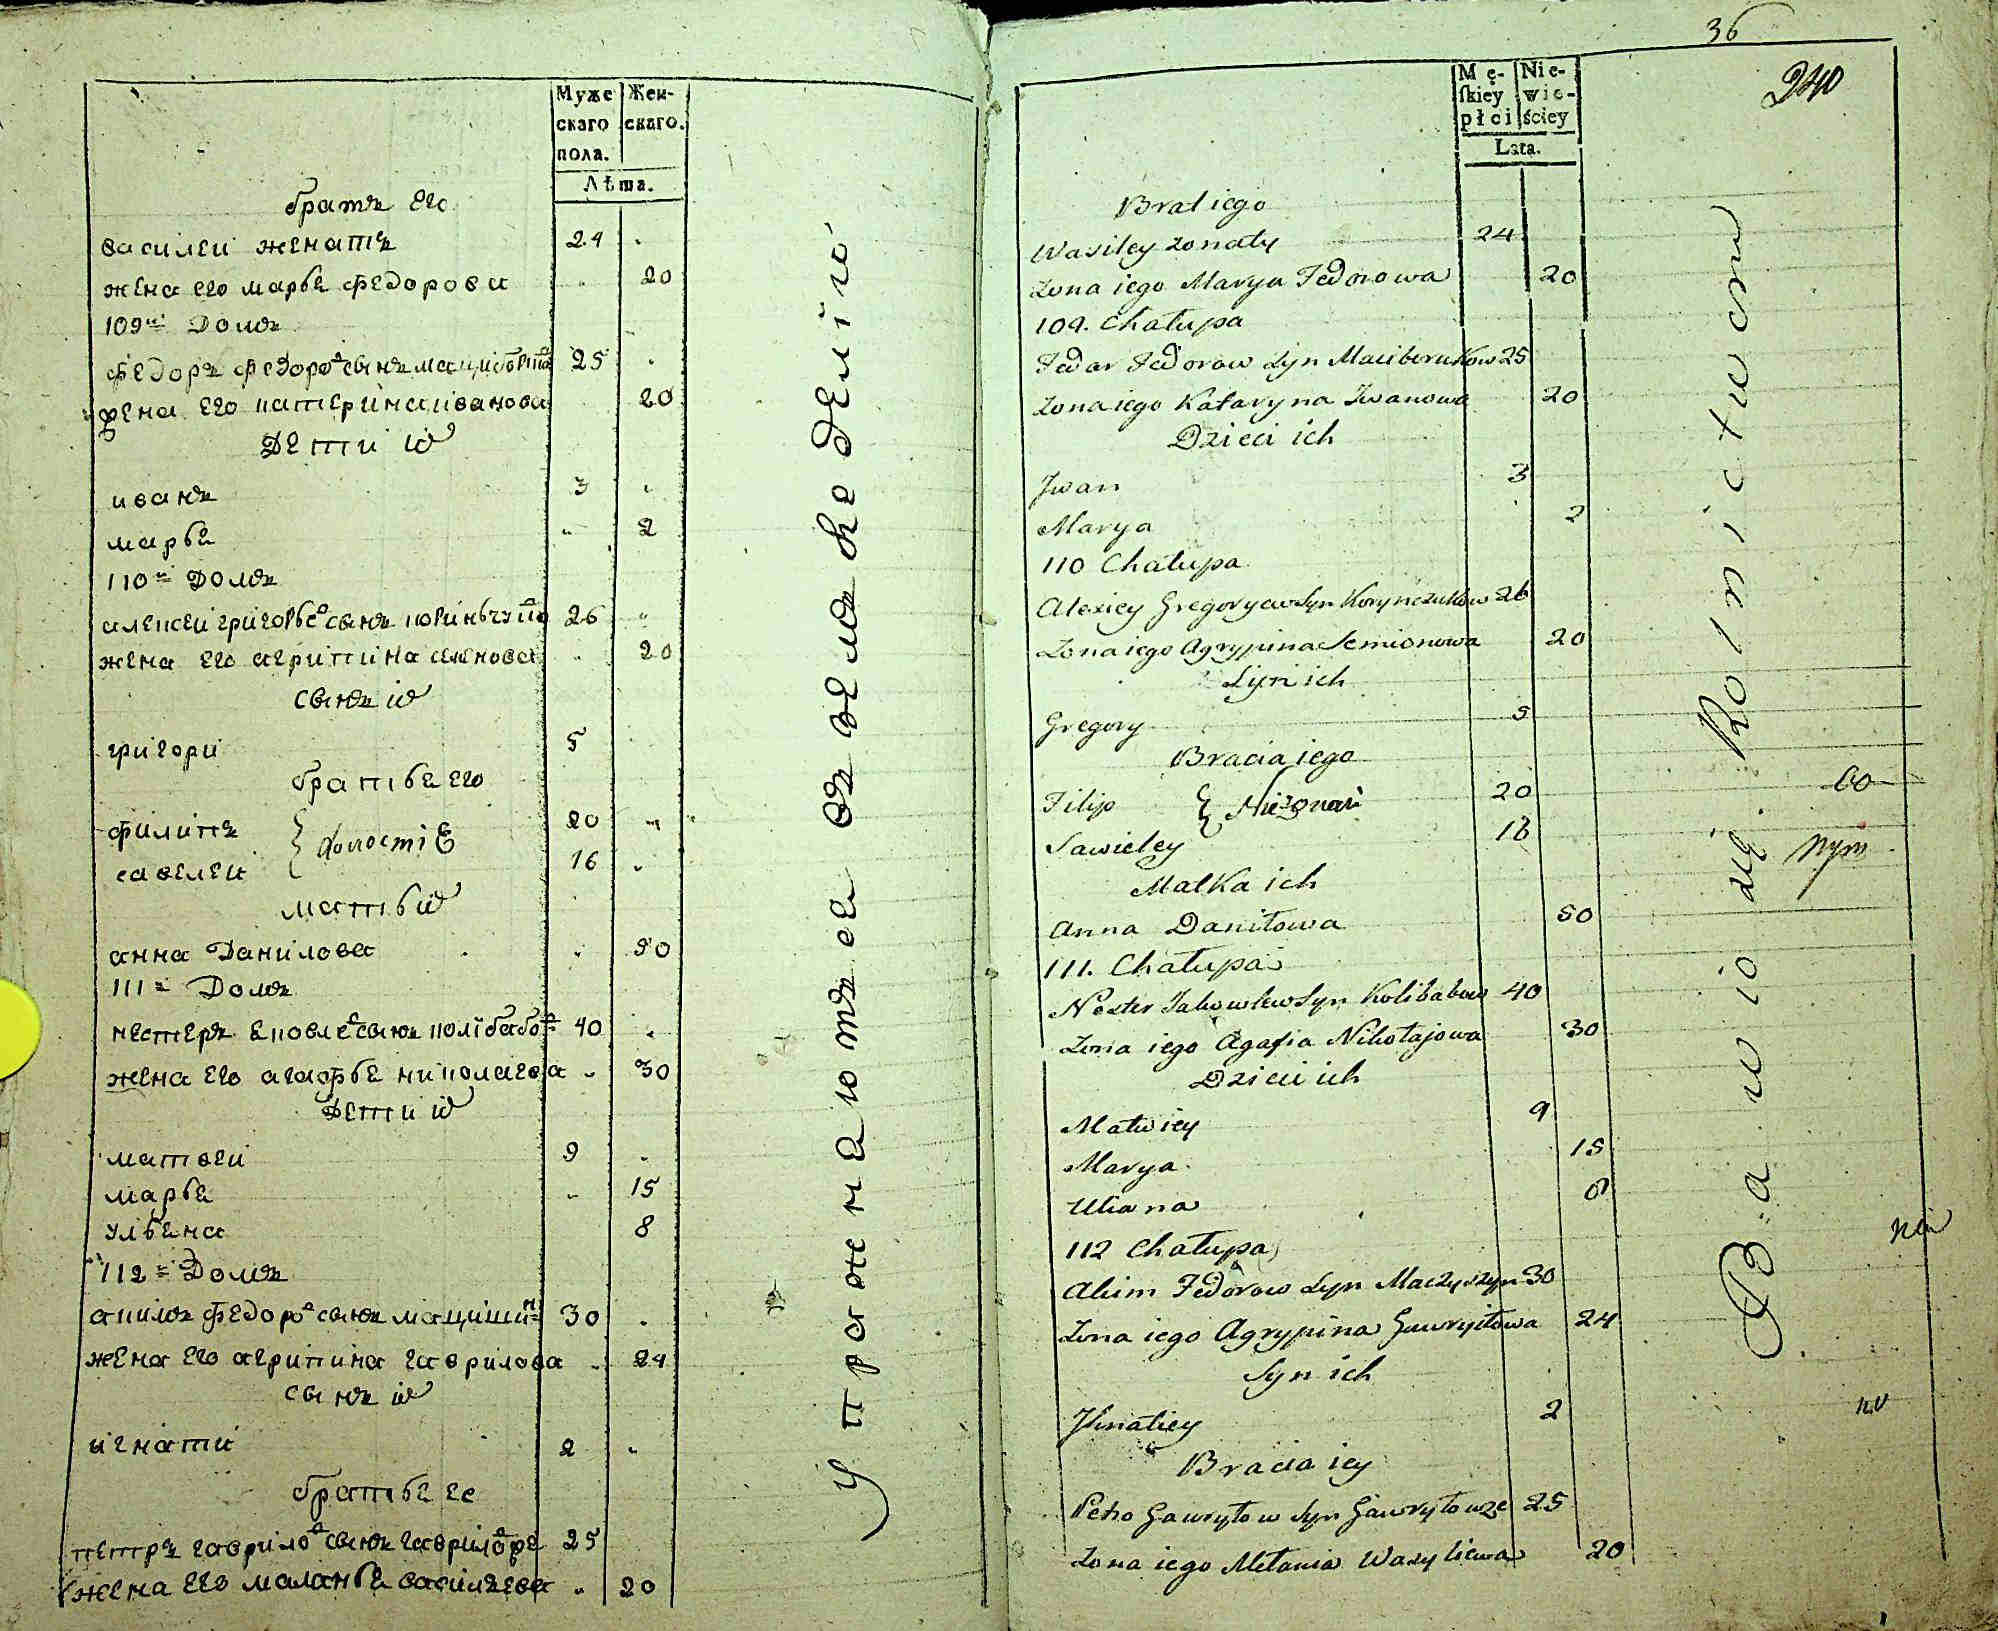 Муже
скаго
пола.
Жен-
скаго.
Лѣта.
братъ его
василеи женатъ 24
жена его марья федорова 20
109й домъ
федоръ федоровъ сынъ 25
жена его катерина иванова 20
дети их
иванъ 3
марья 2
110й домъ
алексеи григорьевъ сынъ 26
жена его агрипина семенова 20
сынъ их
григори 5
братья его
филипъ 20
савелеи 16
холостіе
мать их
анна данилова 50
111й домъ
нестеръ яковлевъ сынъ 40
жена его агафья николаева 30
дети их
матвеи 9
марья 15
ульяна 8
112й домъ
акимъ федоровъ сынъ мацишинъ 30
жена его агрипина гаврилова 24
сынъ их
игнати 2
братья ее
петръ гавриловъ сынъ 25
жена его маланья василъева 20
Упражняютъся въ земледеліи
36
240
Mę-
skiey
płci
Nie-
wie-
ściey
Lata.
Brat iego
Wasiley żonaty 24
Żona iego Marya Fedorowa 20
109. Chałupa
Fedor Fedorow Syn Maciborukow 25
Żona iego Kataryna Iwanowa 20
Dzieci ich
Jwan 3
Marya 2
110 Chałupa
Alexiey Gregoryew Syn Korynczukow 26
Żona iego Agrypina Semionowa 20
Syn ich
Gregory 5
Bracia iego
Filip 20
Sawieley 16
Nieżonaci
Matka ich
Anna Daniłowa 50
111. Chałupa
Nester Jakowlew Syn Kolibabow 40
Żona iego Agafia Nikołajowa 30
Dzieci ich
Matwiey 9
Marya 15
Uliana 8
112 Chałupa
Akim Fedorow Syn Maczyszyn 30
Żona iego Agrypina Gawryłowa 24
Syn ich
Jhnatiey 2
Bracia iey
Petro Gawryłow Syn 25
Żona iego Mełania Wasyliewa 20
Bawią się Rolnictwem